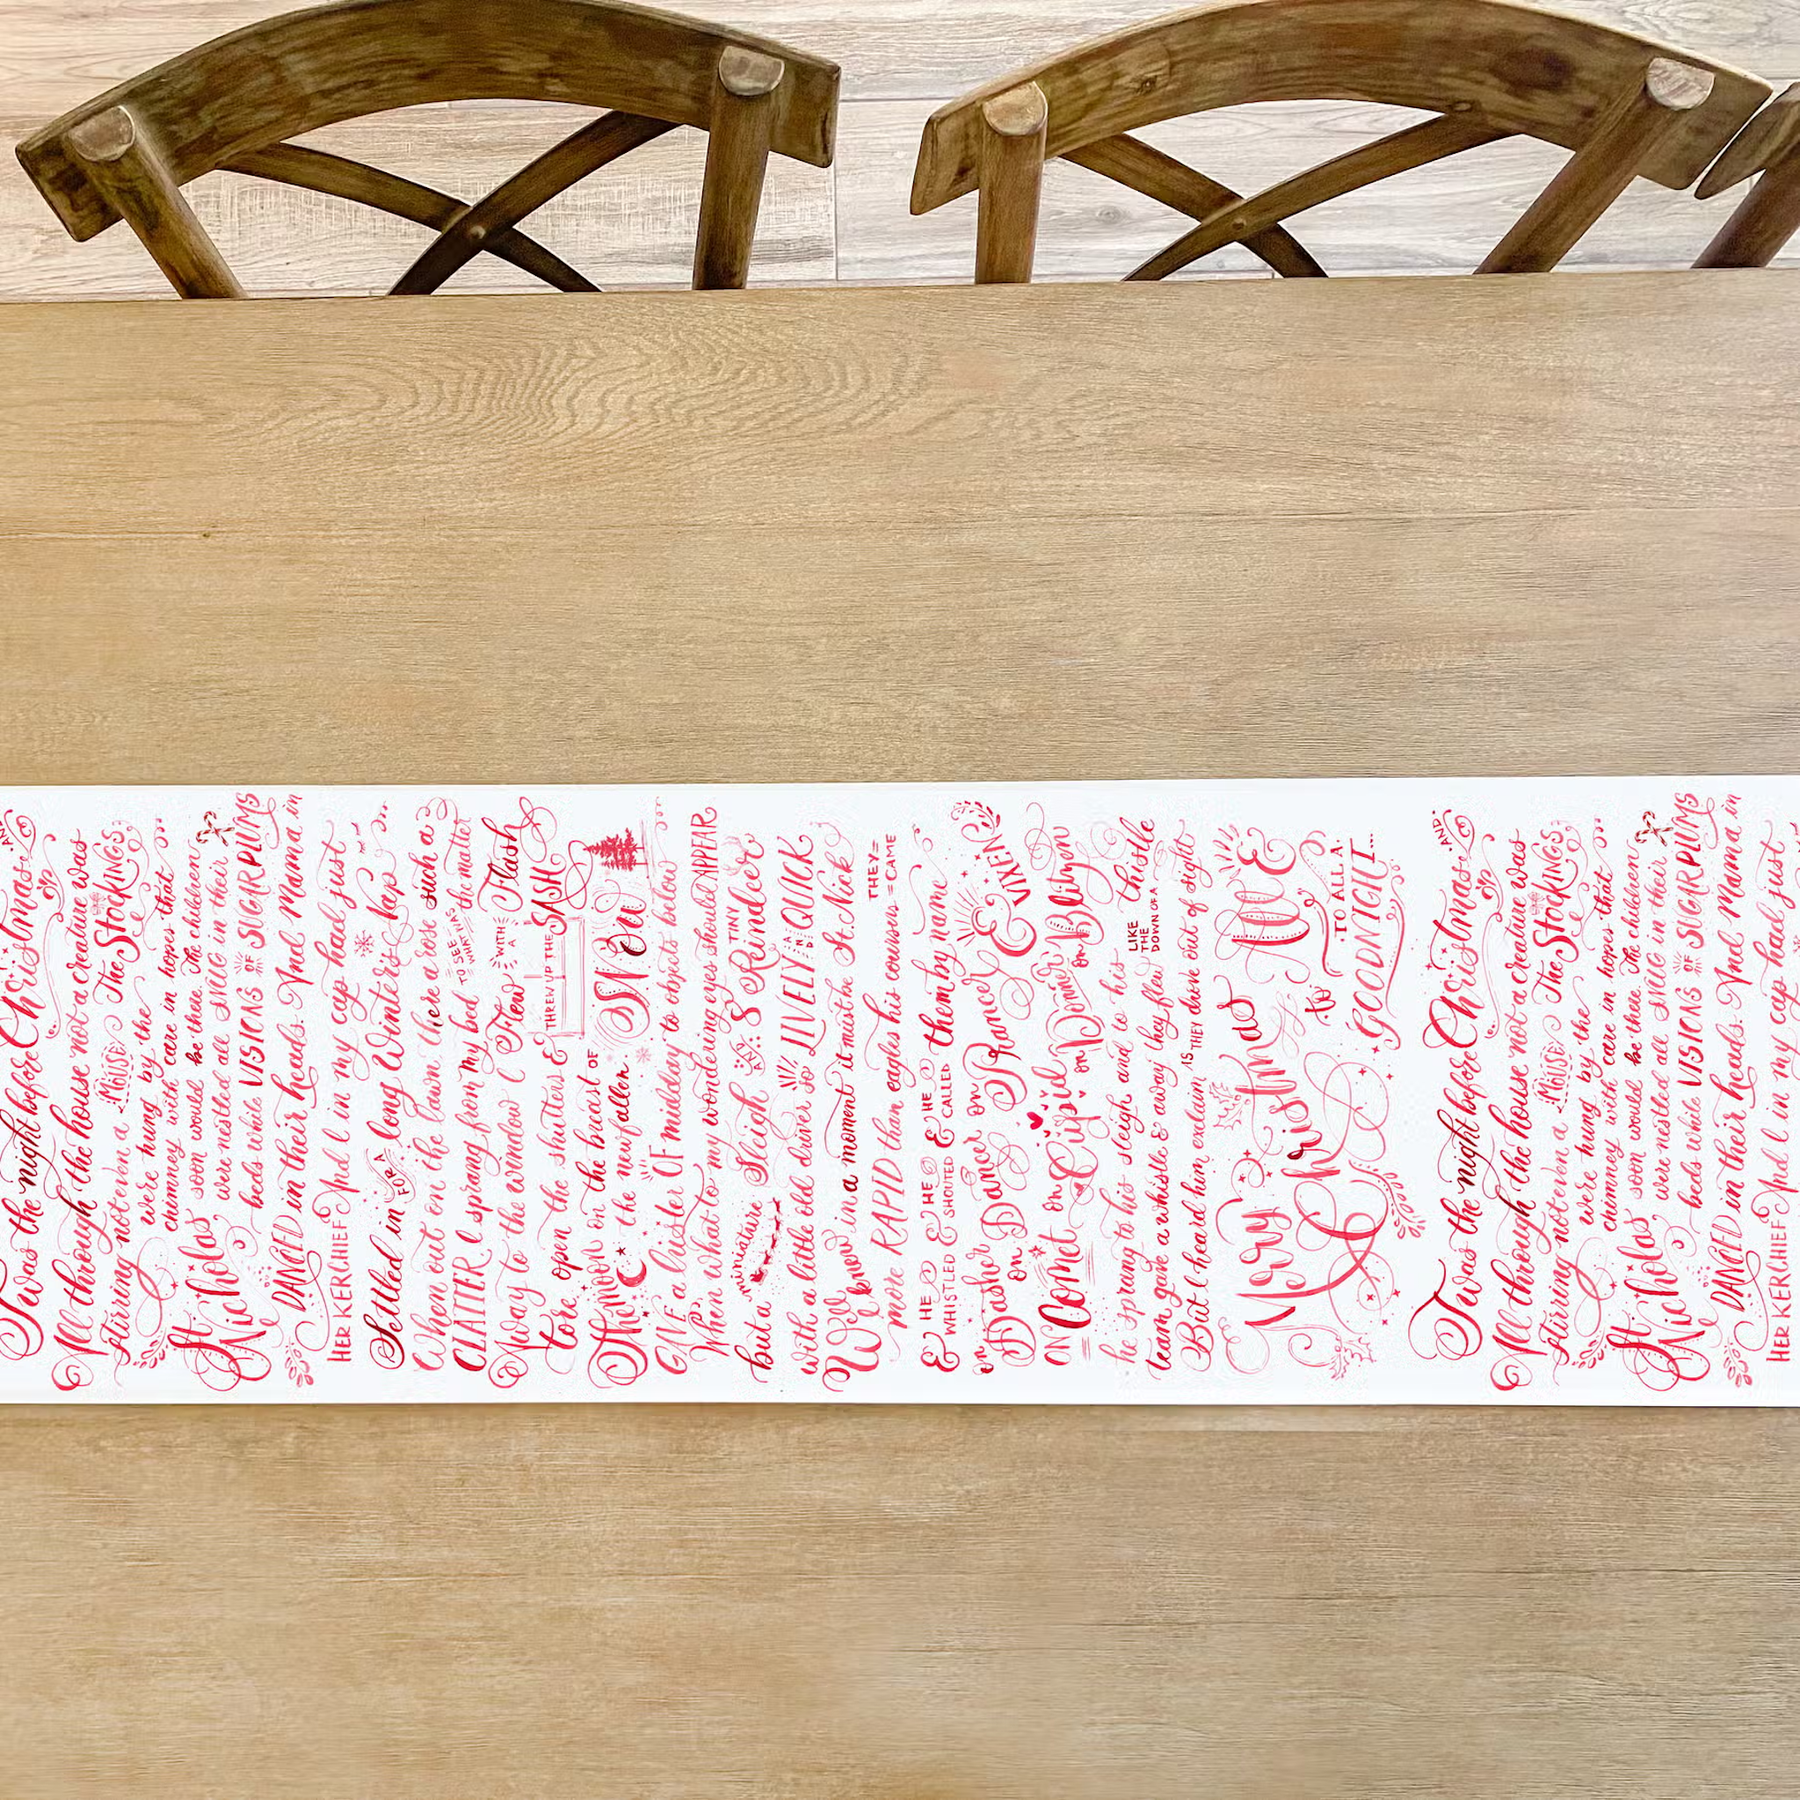 'Twas the night before Christmas AND
All through the house not a creature was
stirring not even a MOUSE The STOCKINGS
were hung by the
chimney with care in hopes that
St. Nicholas soon would be there The children
were nestled all SNUG in their
beds while VISIONS OF SUGARPLUMS
DANCED in their heads. And Mama in
HER KERCHIEF And I in my cap had just
Settled in FOR A long Winter's Nap
When out on the lawn there arose such a
CLATTER I sprang from my bed TO SEE WHAT WAS the matter
Away to the window I Flew WITH A Flash
tore open the shutters & THREW UP THE SASH
The MOON on the breast OF
the new fallen SNOW
GAVE a luster OF midday to objects below
When what to my wondering eyes should APPEAR
but a miniature Sleigh AND 8 TINY Reindeer
with a little old driver so LIVELY AND QUICK
We know in a moment it must be St. Nick
more RAPID than eagles his coursers THEY CAME
& HE WHISTLED & HE SHOUTED & HE CALLED them by name
on Dasher on Dancer on Prancer & VIXEN
ON Comet on Cupid on Donner on Blitzen
he sprang to his sleigh and to his
team gave a whistle & away they flew LIKE THE DOWN OF A thistle
But I heard him exclaim 'ERE THEY drove out of sight
Merry Christmas to ALL &
TO ALL A
GOODNIGHT...
'Twas the night before Christmas AND
All through the house not a creature was
stirring not even a MOUSE The STOCKINGS
were hung by the
chimney with care in hopes that
St. Nicholas soon would be there The children
were nestled all SNUG in their
beds while VISIONS OF SUGARPLUMS
DANCED in their heads. And Mama in
HER KERCHIEF And I in my cap had just